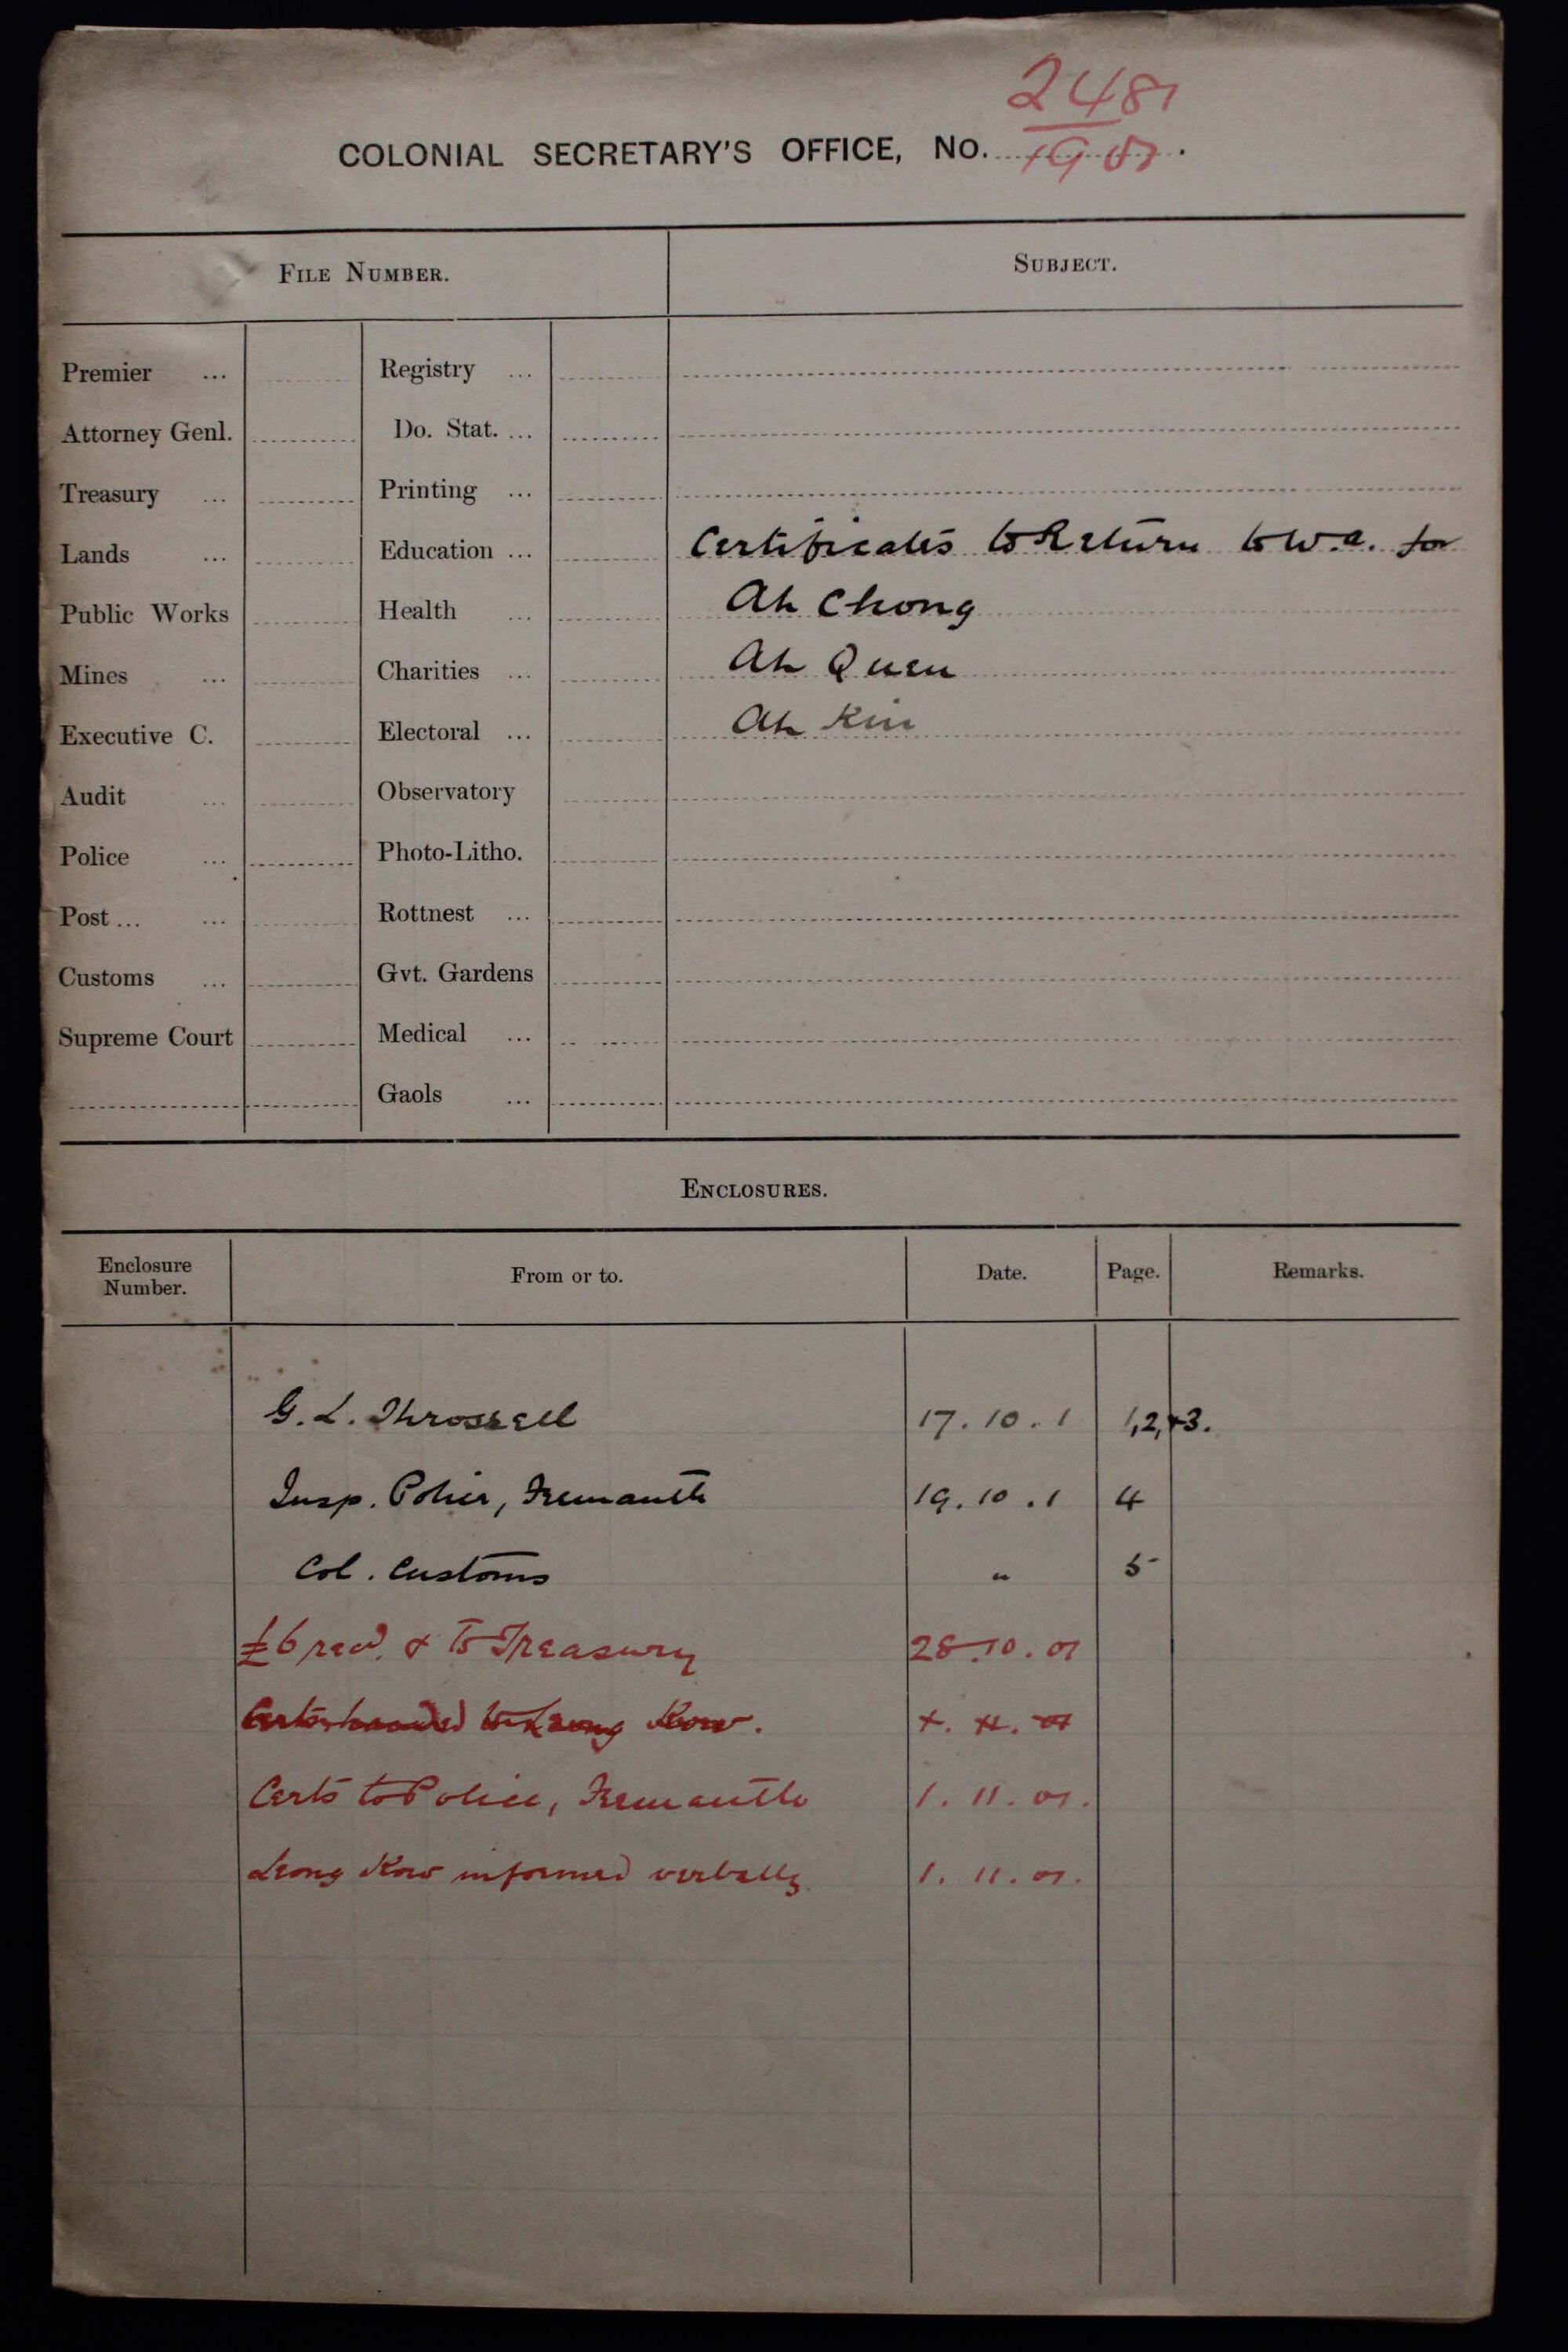 2481
COLONIAL SECRETARY'S OFFICE, No. 1901.
FILE NUMBER. SUBJECT.
Premier ... Registry ...
Attorney Genl. Do. Stat. ...
Treasury ... Printing ...
Lands ... Education ... Certificates to Return to W.A. for
Public Works Health ... Ah Chong
Mines ... Charities ... Ah Quen
Executive C. Electoral ... Ah Kin
Audit ... Observatory
Police ... Photo-Litho.
Post ... ... Rottnest ...
Customs ... Gvt. Gardens
Supreme Court Medical ...
Gaols ...
ENCLOSURES.
Enclosure Number. From or to. Date. Page. Remarks.
G. L. Throssell 17.10.1 1,2,+3.
Insp. Police, Fremantle 19.10.1 4
Col. Customs " 5
£6 recd. & to Treasury 28.10.01
Certs handed to Leong Kow.
Certs to Police, Fremantle 1.11.01.
Leong Kow informed verbally 1.11.01.